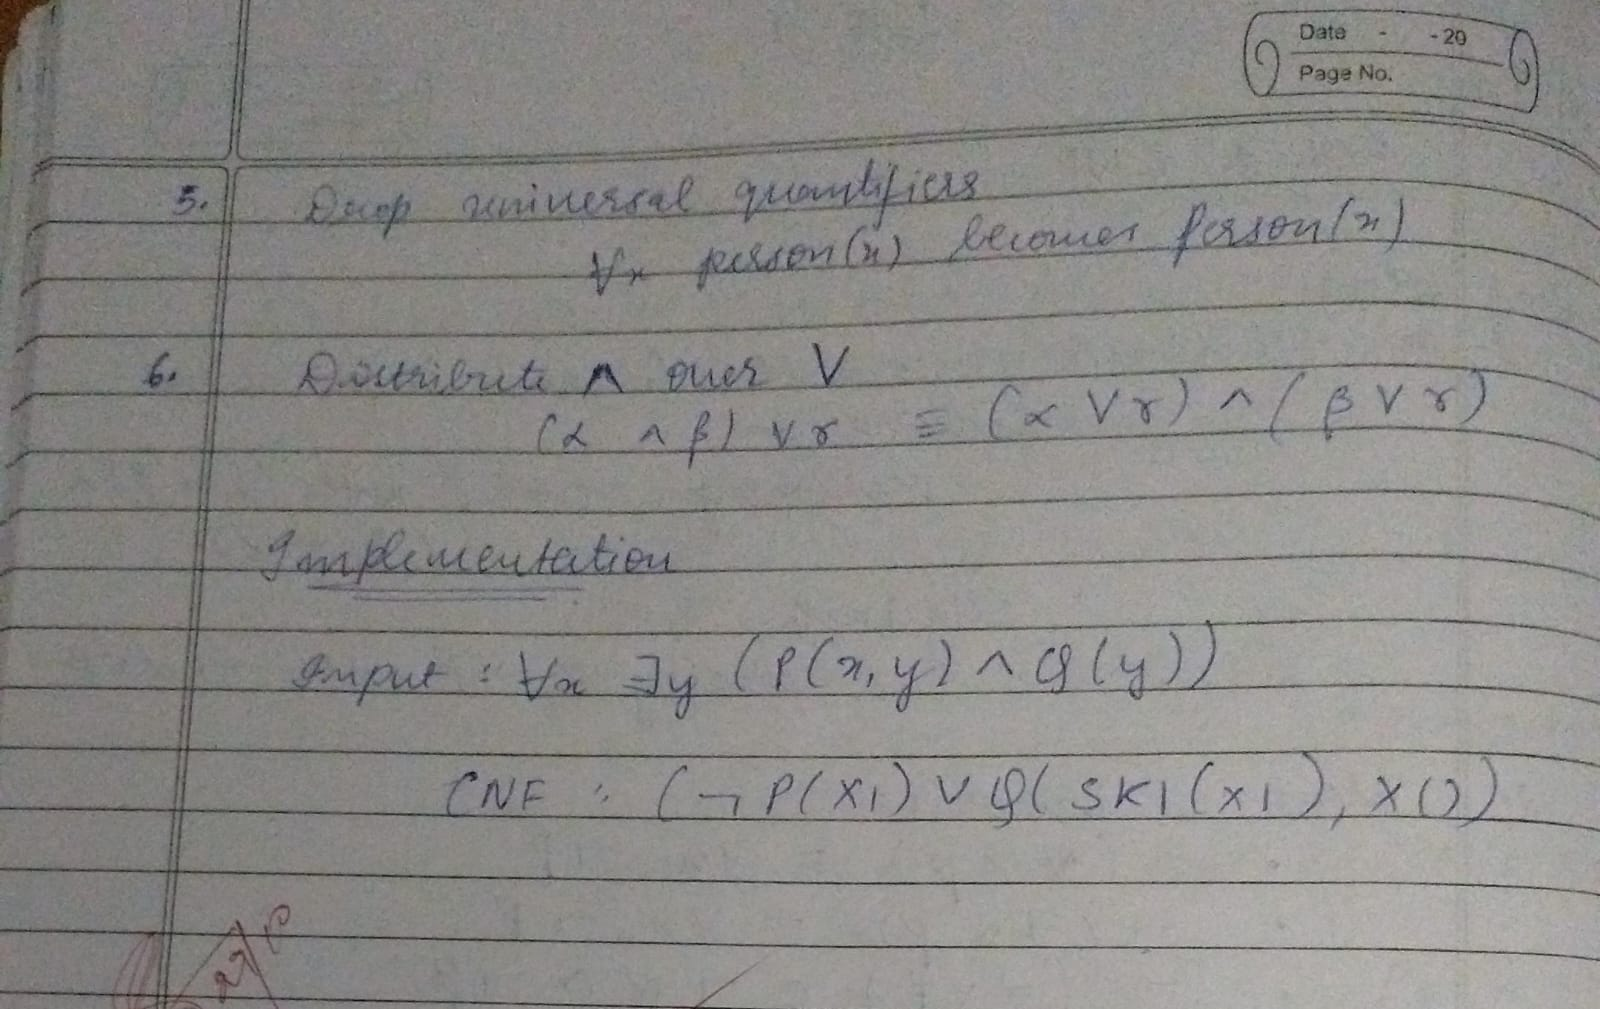 Date - - 20
Page No.
5. Drop universal quantifiers
∀x person(x) becomes Person(x)
6. Distribute ∧ over ∨
(α ∧ β) ∨ γ ≡ (α ∨ γ) ∧ (β ∨ γ)
Implementation
Input : ∀x ∃y (P(x,y) ∧ Q(y))
CNF : (¬P(X1) ∨ Q(SK1(x1), X())